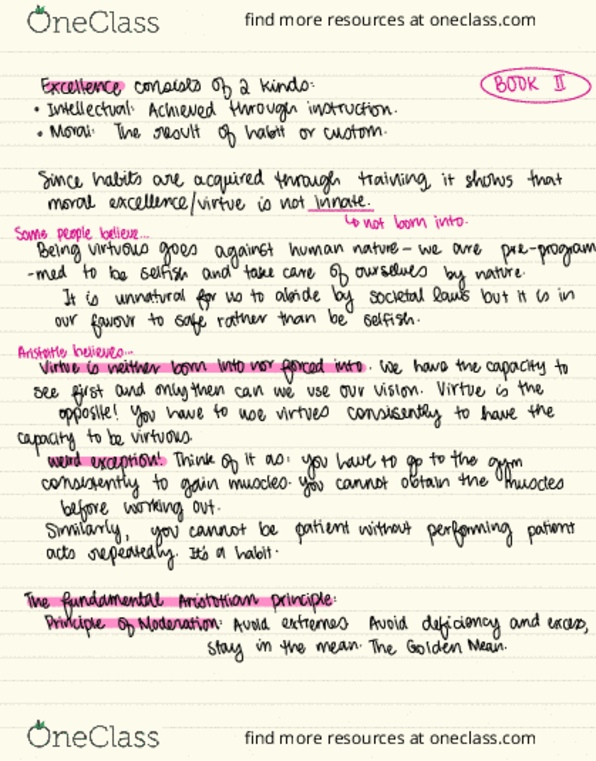 OneClass
find more resources at oneclass.com
Excellence consists of 2 kinds:
BOOK II
• Intellectual: Achieved through instruction.
• Moral: The result of habit or custom.
Since habits are acquired through training it shows that
moral excellence/virtue is not innate.
↳ not born into.
Some people believe...
Being virtuous goes against human nature - we are pre-program
-med to be selfish and take care of ourselves by nature.
It is unnatural for us to abide by societal laws but it is in
our favour to safe rather than be selfish.
Aristotle believes...
Virtue is neither born into nor forced into. We have the capacity to
see first and only then can we use our vision. Virtue is the
opposite! You have to use virtues consisently to have the
capacity to be virtuous.
weird exception! Think of it as: you have to go to the gym
consistently to gain muscles. you cannot obtain the muscles
before working out.
Similarly, you cannot be patient without performing patient
acts repeatedly. It's a habit.
The fundamental Aristotlian principle:
Principle of Moderation: Avoid extremes Avoid deficiency and excess,
stay in the mean. The Golden Mean.
OneClass
find more resources at oneclass.com